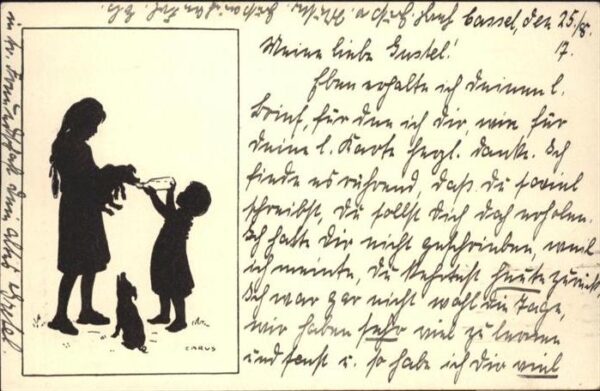 Cassel, den 25./8.
17.
Meine liebe Gustel!
Eben erhalte ich Deinen l.
Brief, für den ich Dir, wie für
Deine l. Karte herzl. danke. Ich
finde es rührend, daß Du soviel
schreibst, Du sollst Dich doch erholen.
Ich hatte Dir nicht geschrieben, weil
ich meinte, Du kehrtest heute zurück.
Ich war gar nicht wohl die Tage,
wir haben sehr viel zu lernen
und sonst u. so habe ich Dir viel
CARUS